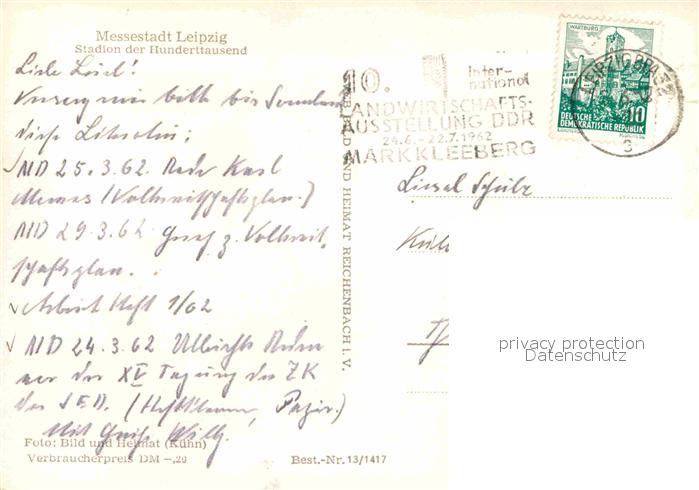 Messestadt Leipzig
Stadion der Hunderttausend
Liebe Liesel!
bitte bis
diese
ND 25.3.62. Rede Karl
Mewes (Volkswirtschaftsplan.)
ND 29.3.62 Gesetz z. Volkswirt,
schaftsplan.
Arbeit Heft 1/62
ND 24.3.62 Ulbrichts Reden
vor der XV Tagung des ZK
der SED. (
Mit Gruß Willy.
Foto: Bild und Heimat (Kühn)
Verbraucherpreis DM -,20
Best.-Nr. 13/1417
BILD UND HEIMAT REICHENBACH i. V.
10. Inter-
national
LANDWIRTSCHAFTS-
AUSSTELLUNG DDR
24.6.-22.7.1962
MARKKLEEBERG
WARTBURG
10
DEUTSCHE
DEMOKRATISCHE REPUBLIK
LEIPZIG BPA 32
Liesel Schulz
privacy protection
Datenschutz